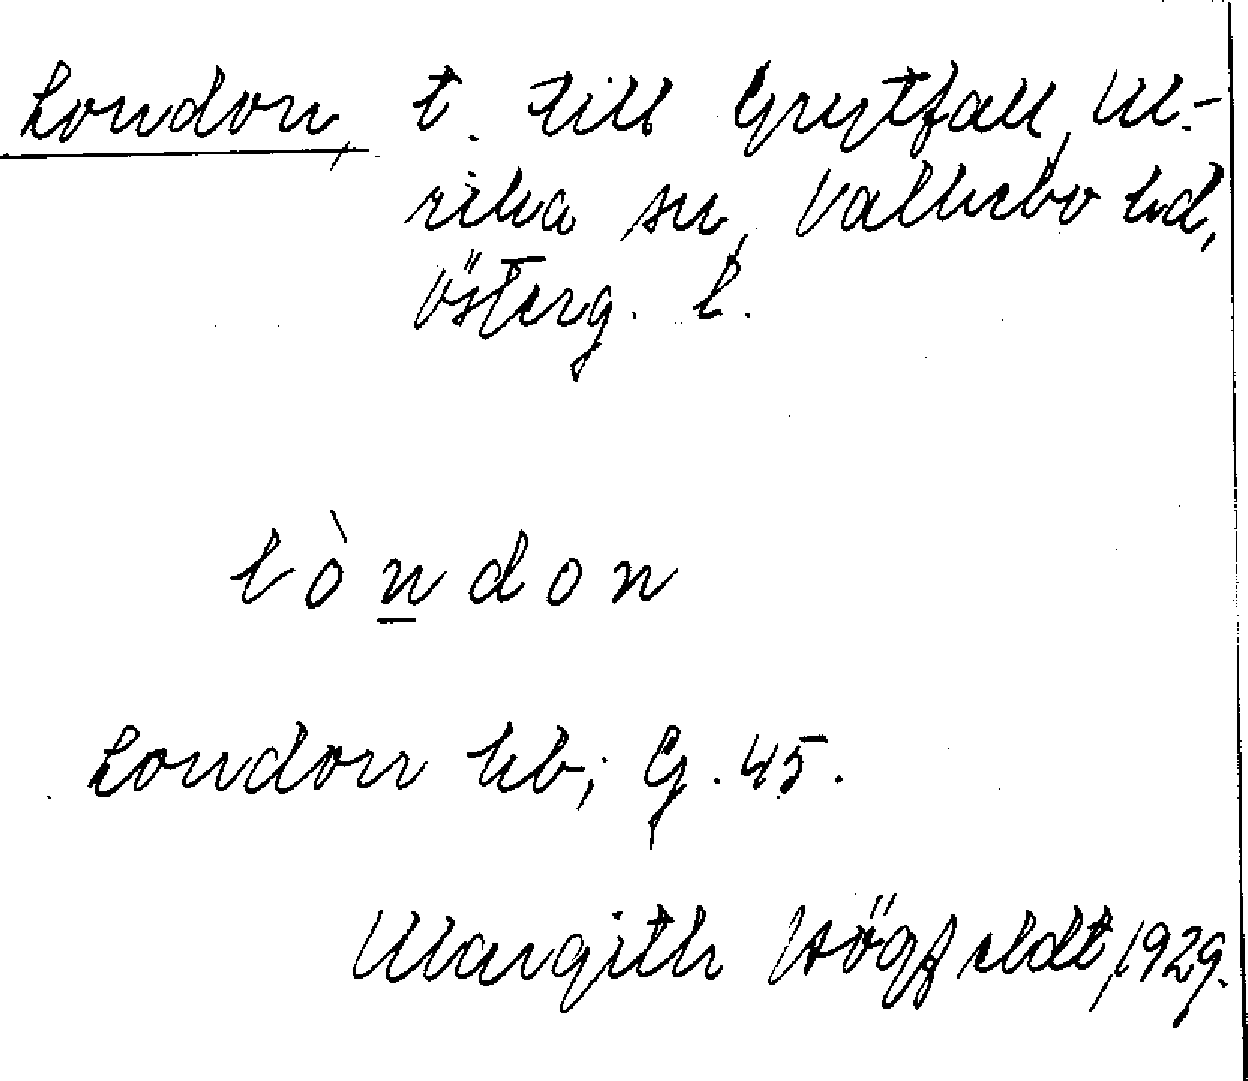 London, t. till Grytfall, Ul-
rika sn, Valkebo hd,
Österg. l.
lòndon
London hb; G. 45.
Margith Högfeldt, 1929.